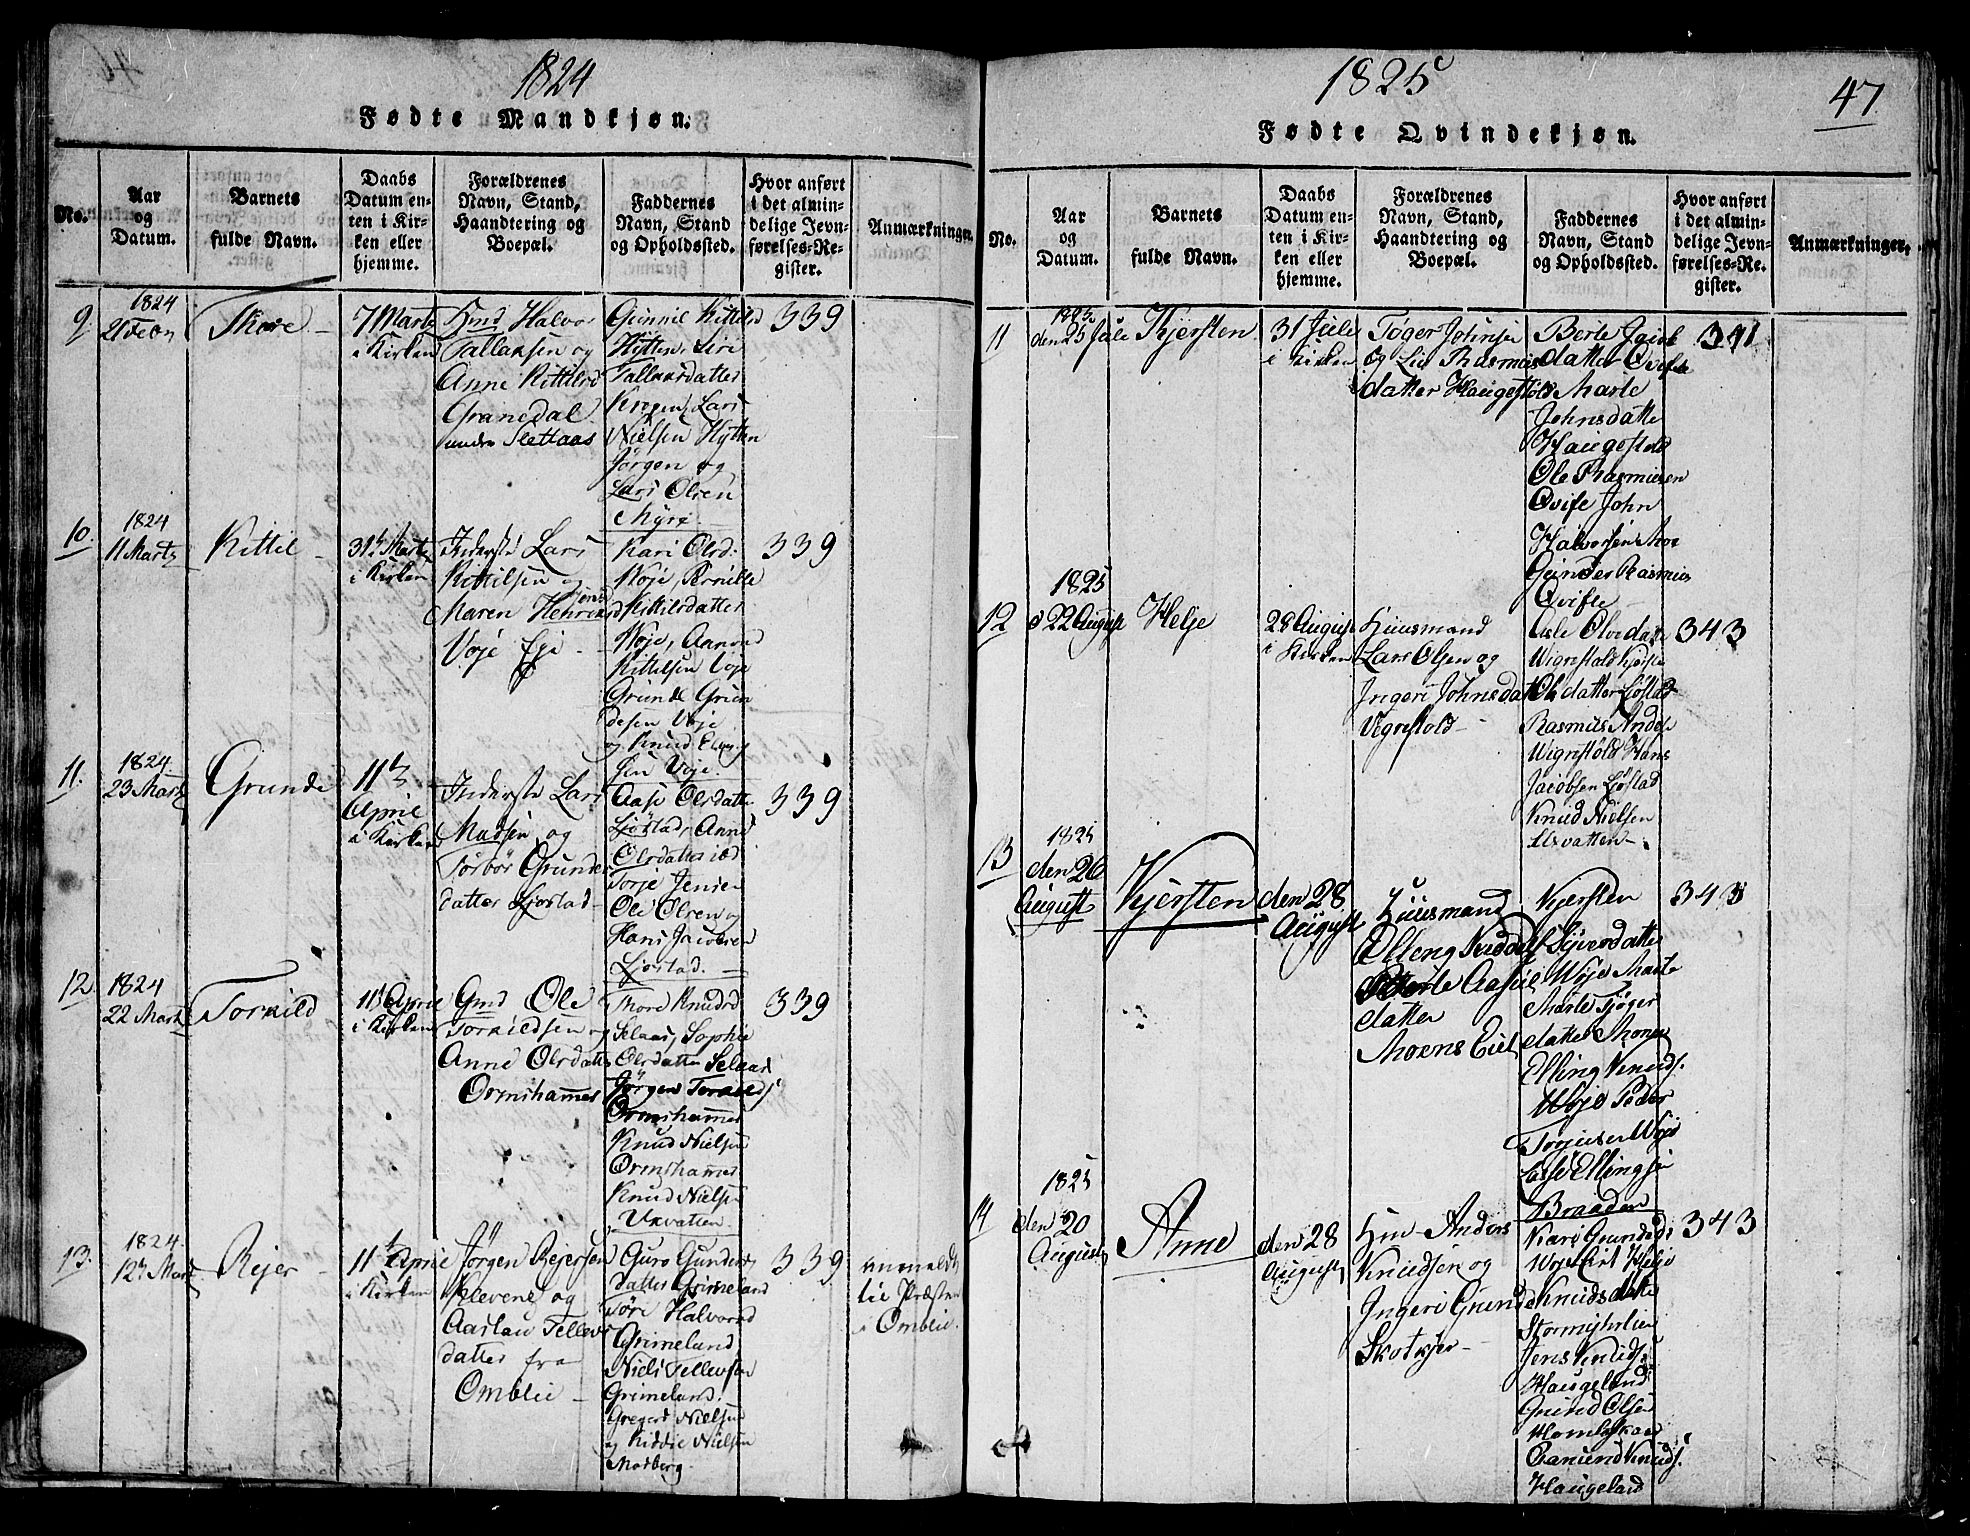 1824
Fødte Mandkjøn.
No.
Aar
og
Datum.
Barnets
fulde Navn.
Daabs
Datum en-
ten i Kir-
ken eller
hjemme.
Forældrenes
Navn, Stand,
Haandtering og
Boepæl.
Faddernes
Navn, Stand
og Opholdssted.
Hvor anført
i det almin-
delige Jevn-
førelses-Re-
gister.
Anmærkninger
9
1824
Thore
7 Marts
i Kirken
Hmd Halvor
Tallaksen og
Anne Kittilsd
Granedal
under Slettaas
Gunnil Kittilsd
Hytten, Siri
Tallaksdatter
Lars
Nielsen Hytten
Jörgen og
Lars Olsen
Myre
339
10.
1824
11 Marts
Kittil
31te Marts
i Kirken
Inderste Lars
Kittilsen og
Maren Henriks
Voje Eje
Kari Olsd:
Woje, Pernille
Kittilsdatter
Woje, Aanond
Kittilsen Voje
Grunde Grun
desen Voje
og Knud Elling
sen Voje.
339
11.
1824
23 Marts
Grunde
11te
April
i Kirken
Inderste Lars
Madsen og
Torbör Grunde
datter Ljostad
Aase Olsdatter
Ljöstad, Anne
Olsdatter ibd
Torje Jensen
Ole Olsen og
Hans Jacobsen
Ljöstad.
339
12
1824
22 Marts
Torkild
11te April
i Kirken
Gmd Ole
Torkildsen og
Anne Olsdatter
Ormshammer
Thore Knudsd
Selaas, Sophie
Olsdatter Selaas
Jörgen Torkilds
Ormshammer
Knud Nielsen
Ormshammer
Knud Nielsen
Uxvatten
339
13.
1824.
12te Mart
Rejer
11te April
i Kirken
Jörgen Rejersen
Klevene og
Aaslau Tellevs
datter fra
Omblie
Guro Gunders
datter Grimeland
Töre Halvorsd
Grimeland
Niels Tellevsen
Grimeland.
Gregert Nielsen
og Kiddie Nielsen
Mosberg
339
anmeldt
til Præsten
i Omblie.
1825
47
Fødte Qvindekjøn.
No.
Aar
og
Datum.
Barnets
fulde Navn.
Daabs
Datum en-
ten i Kir-
ken eller
hjemme.
Forældrenes
Navn, Stand,
Haandtering og
Boepæl.
Faddernes
Navn, Stand
og Opholdssted.
Hvor anført
i det almin-
delige Jevn-
førelses-Re-
gister.
Anmærkninger.
11
1825
den 25 Jule
Kjersten
31 Jule
i Kirken
Töger Johnsen
og Liv Rasmus
datter Haugestöld
Berte Jacob
datter Qvifte
Marte
Johnsdatte
Haugestöld
Ole Rasmusen
Qvifte John
Halvorsen Moe
Gunder Rasmus
Qvifte
341
12
1825
d 22 August
Helje
28 August
i Kirken
Huusmand
Lars Olsen og
Ingeri Johnsdat
Vegnstold
Asle Olsdat
Wignstöld Kjerste
Ols datter Ljöstad
Rasmus Anders
Wignstöld Hans
Jacobsen Ljöstad
Knud Nielsen
Uxvatten
343
13
1825
den 26
August
Kjersten
den 28
August
Huusmand
Elleng Knuds
Berte Aasul
datter
Moens Eie
Kjersten
datter
Woje Marte
Marte Töger
datter Moner
Elling Knuds.
Woje Peder
Torjusen Woje
Elling
Braaden
343
14
1825
den 20
August
Anne
den 28
August
Hm Anders
Knudsen og
Ingeri Grunde
Skotkjer
Kari Grundsd:
Woje Helje
Knudsdatte
Stormyhrlien
Jens Knuds:
Haugeland
Gunud Olsen
Gunund Knuds.
Haugeland
343